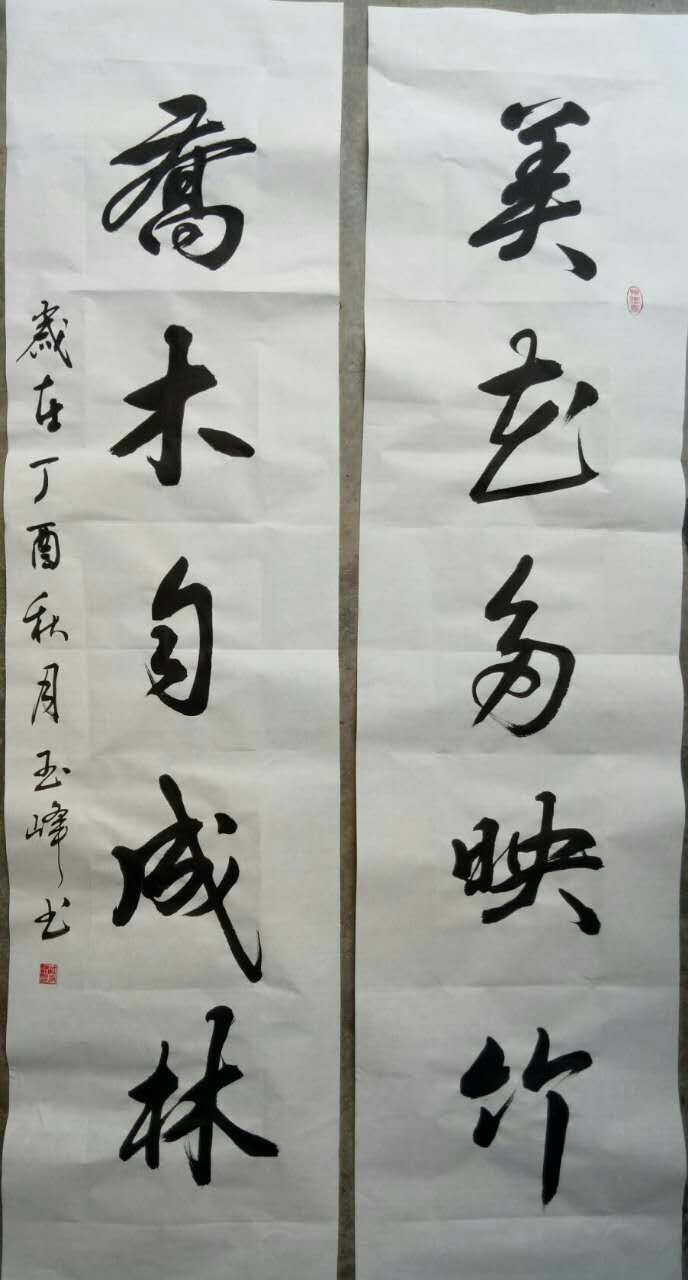 美花多映竹
喬木自成林
歲在丁酉秋月玉峰书